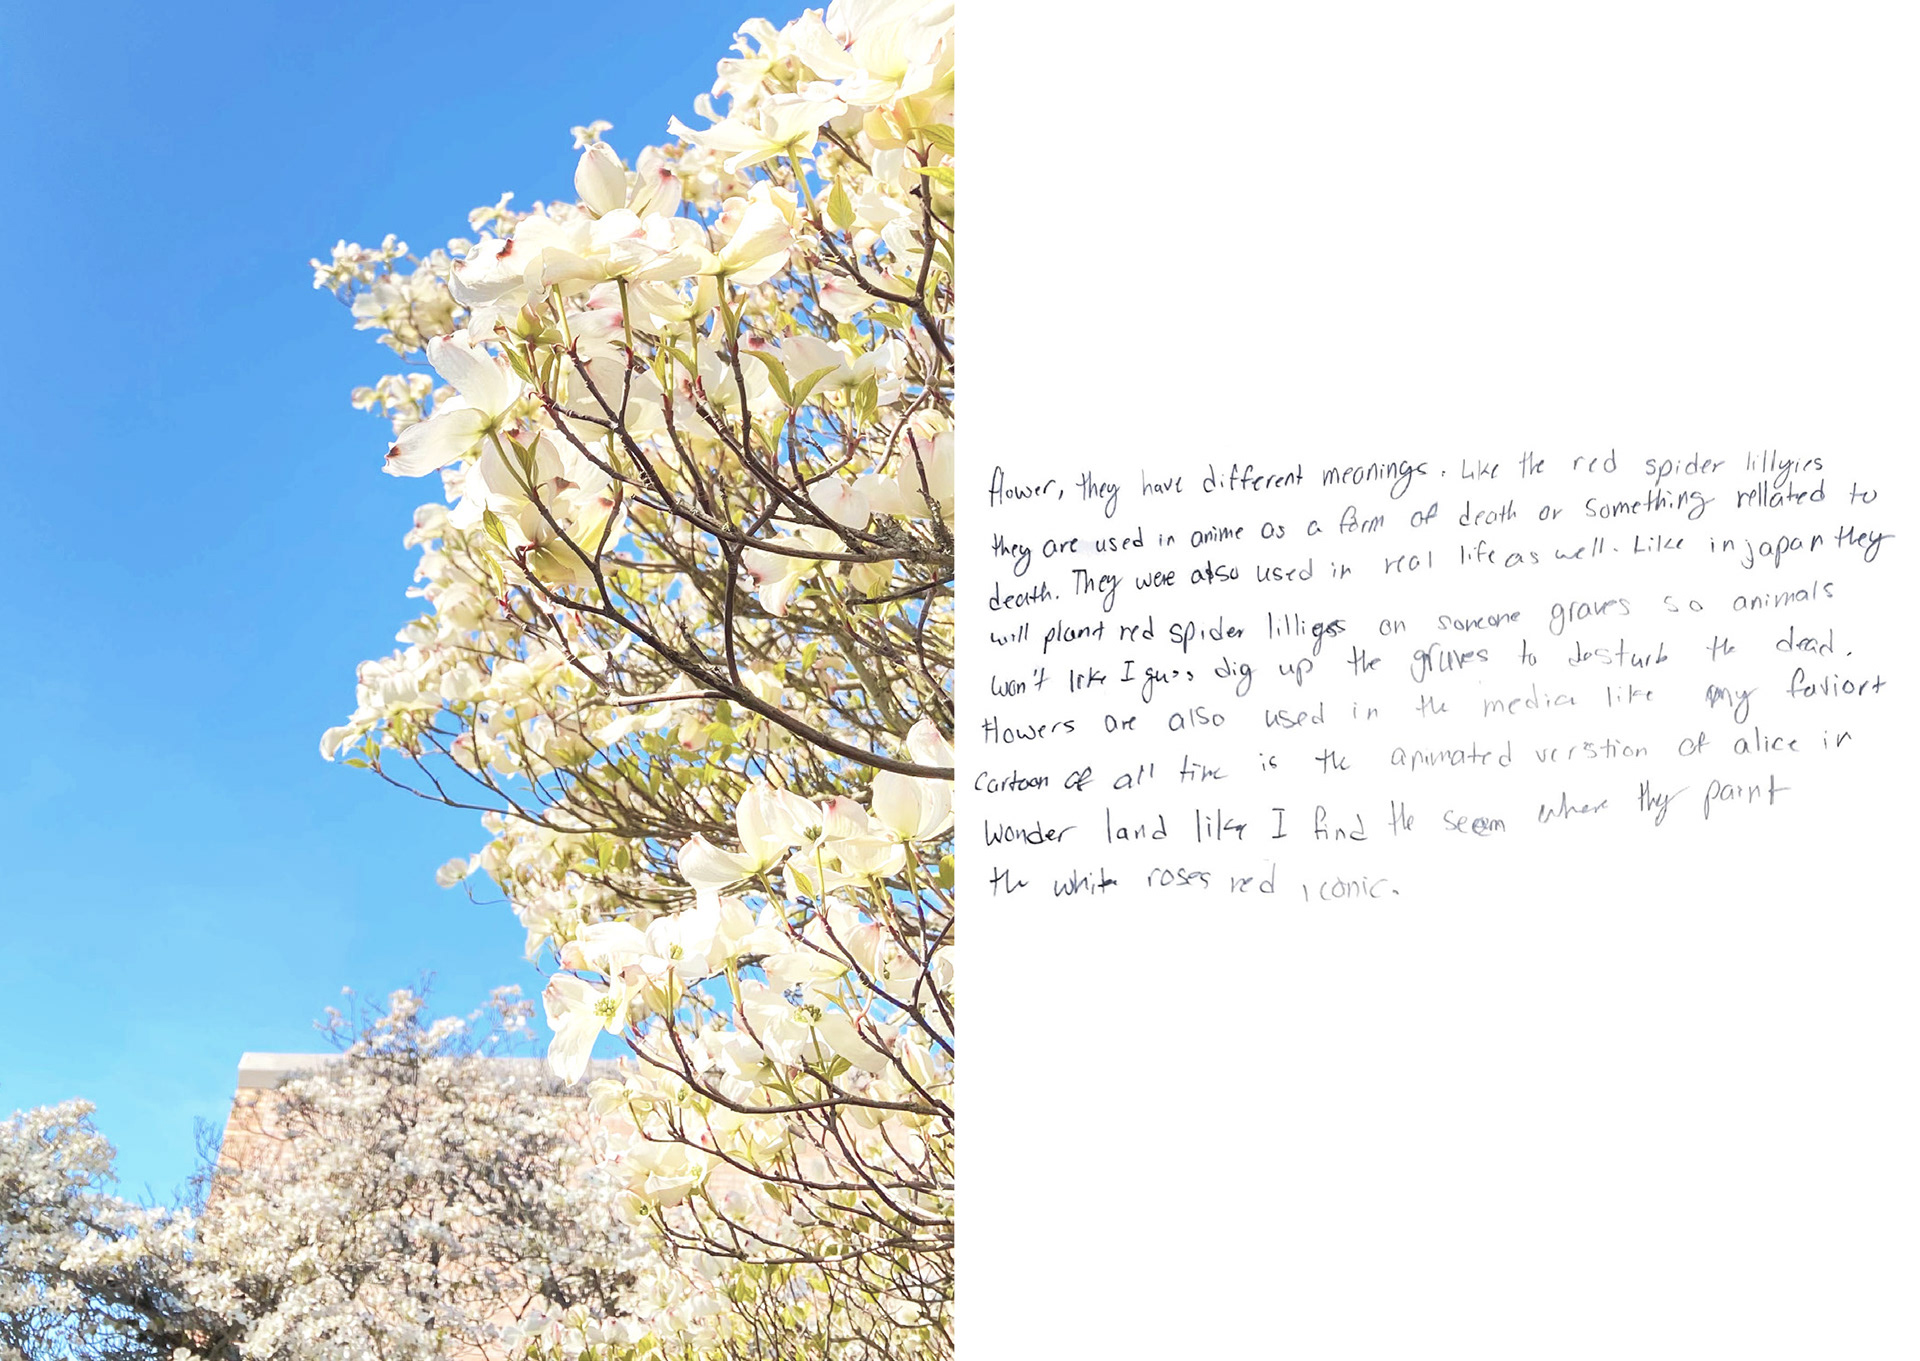 flower, they have different meanings. Like the red spider lillyies
they are used in anime as a form of death or something rellated to
death. They were also used in real life as well. Like in japan they
will plant red spider lillies on someone graves so animals
won't like I guss dig up the graves to desturb the dead.
flowers are also used in the media like my faviort
cartoon of all time is the animated verstion of alice in
wonder land like I find the seem where thy paint
the white roses red iconic.